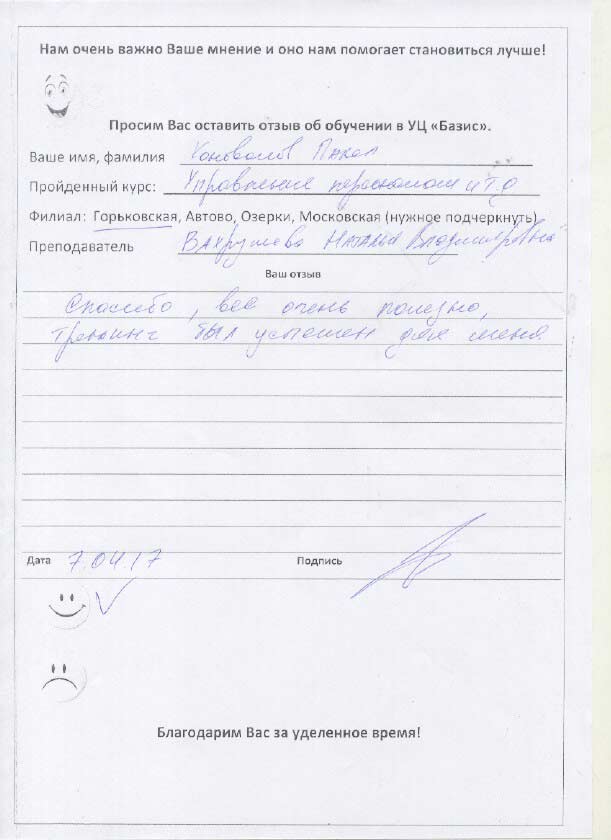 Нам очень важно Ваше мнение и оно нам помогает становиться лучше!
Просим Вас оставить отзыв об обучении в УЦ «Базис».
Ваше имя, фамилия Коновалов Павел
Пройденный курс: Управление персоналом и т.д
Филиал: Горьковская, Автово, Озерки, Московская (нужное подчеркнуть)
Преподаватель Вахрушева Наталья Владимировна
Ваш отзыв
Спасибо, все очень полезно,
тренинг был успешен для меня.
Дата 7.04.17 Подпись
Благодарим Вас за уделенное время!